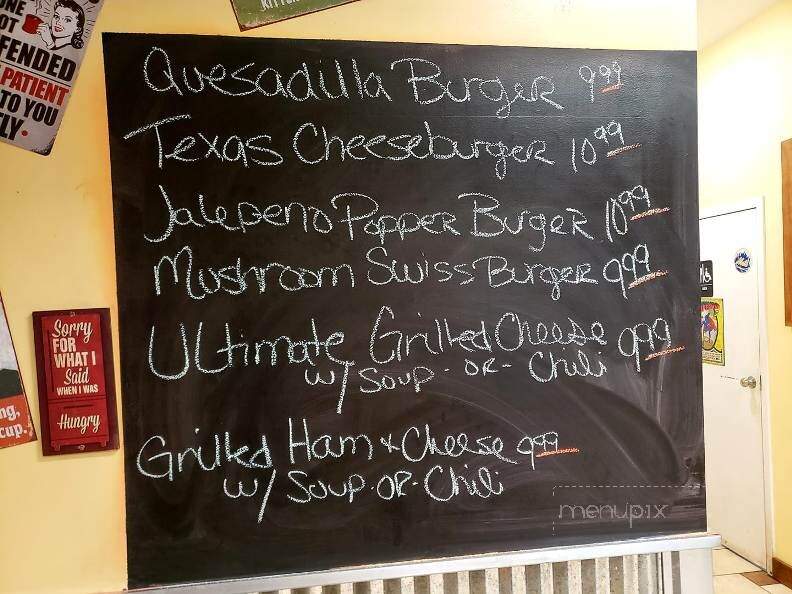 KITCH
ONE
OT
FENDED
PATIENT
TO YOU
LY.
Quesadilla Burger 9 99
Texas Cheeseburger 10 99
Jalepeno Popper Burger 10 99
Mushroom Swiss Burger 9 99
Ultimate Grilled Cheese 9 99
w/ Soup - OR - Chili
Grilled Ham + Cheese 9 99
w/ Soup - OR - Chili
Sorry
FOR
WHAT I
Said
WHEN I WAS
Hungry
ng,
cup.
menupix